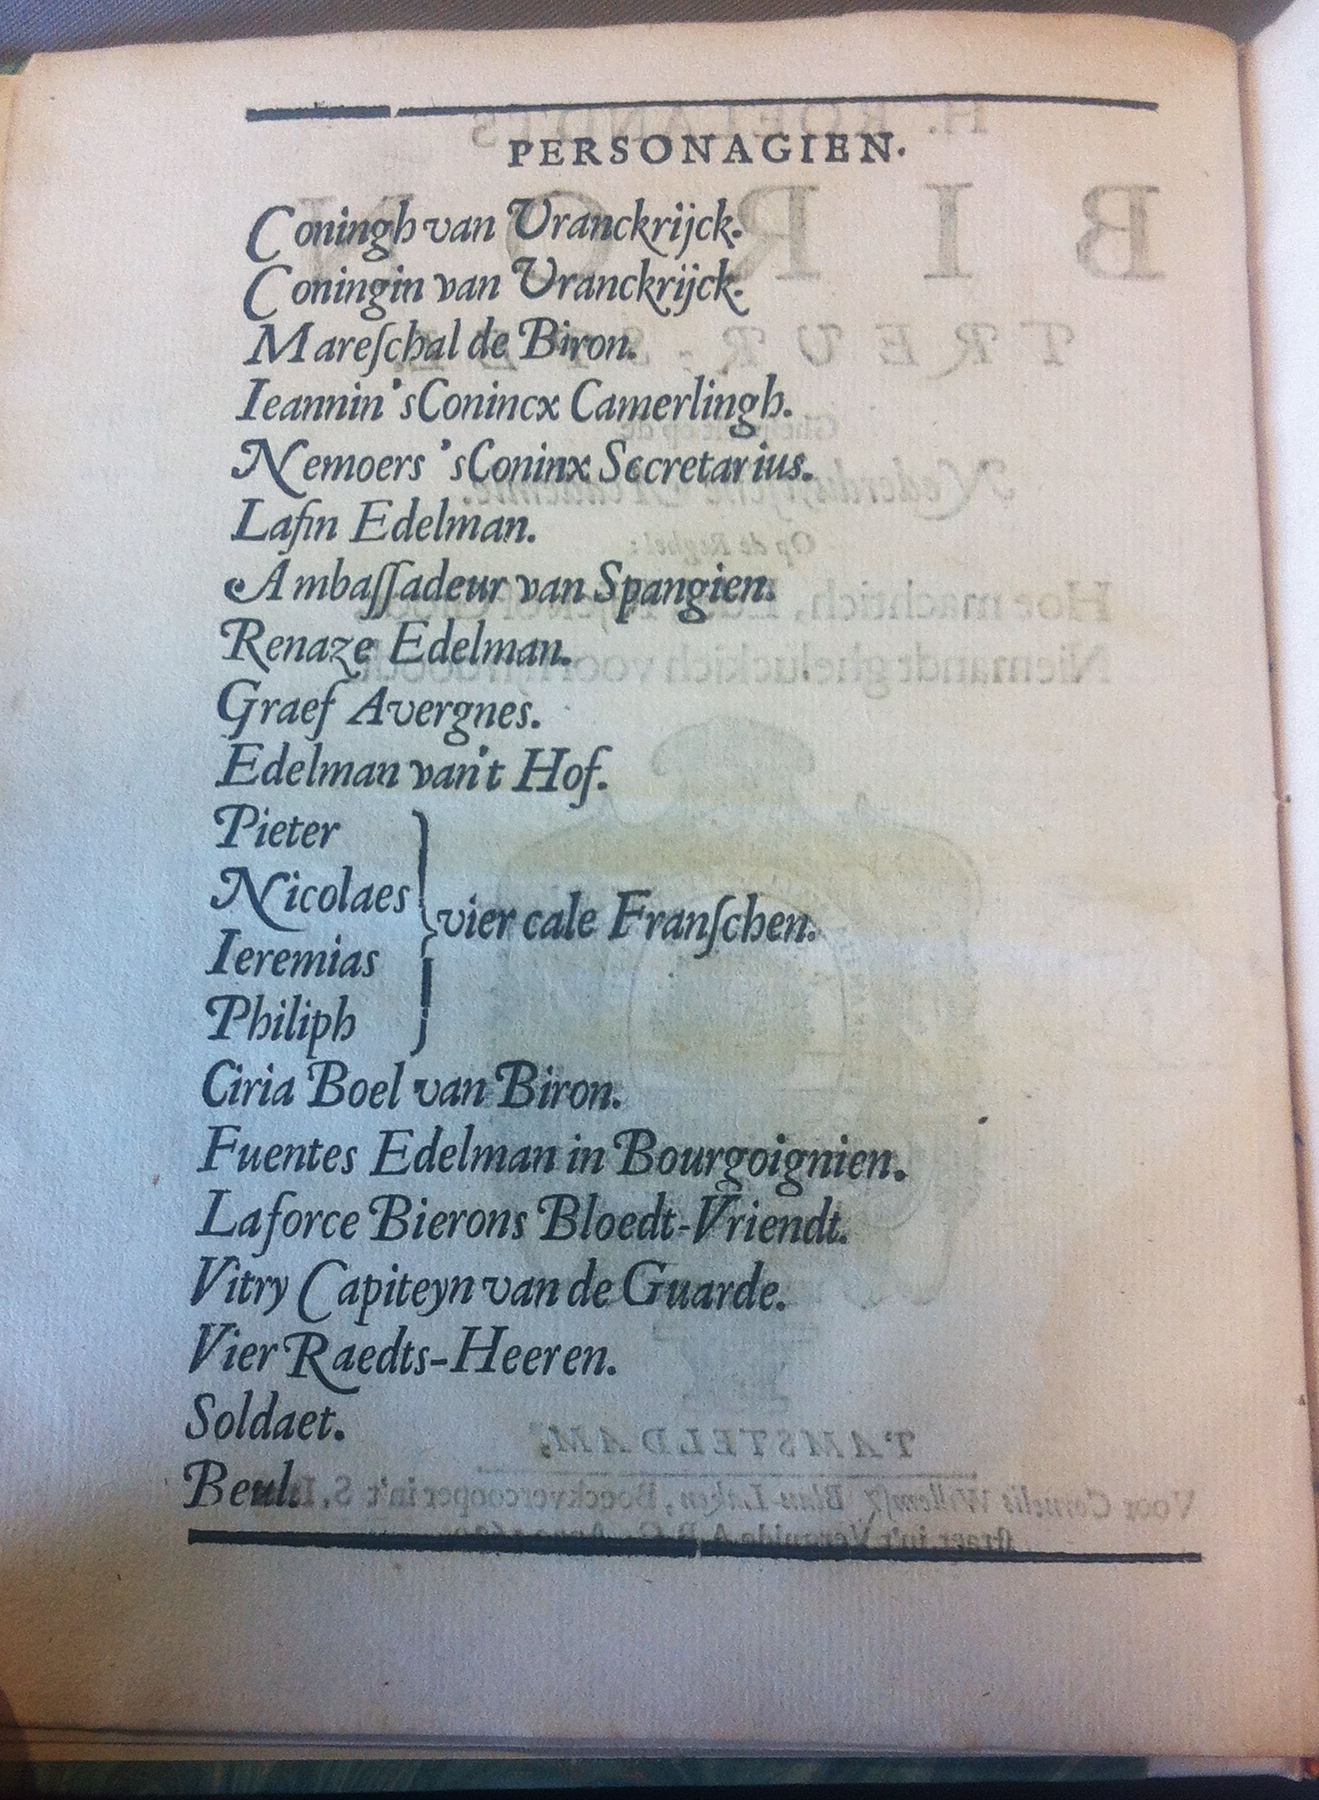 PERSONAGIEN.
Coningh van Vranckrijck.
Coningin van Vranckrijck.
Mareſchal de Biron.
Ieannin 'sConincx Camerlingh.
Nemoers 'sConinx Secretarius.
Lafin Edelman.
Ambaſſadeur van Spangien.
Renaze Edelman.
Graef Avergnes.
Edelman van't Hof.
Pieter
Nicolaes
Ieremias
Philiph
vier cale Franſchen.
Ciria Boel van Biron.
Fuentes Edelman in Bourgoignien.
Laforce Bierons Bloedt-Vriendt.
Vitry Capiteyn van de Guarde.
Vier Raedts-Heeren.
Soldaet.
Beul.